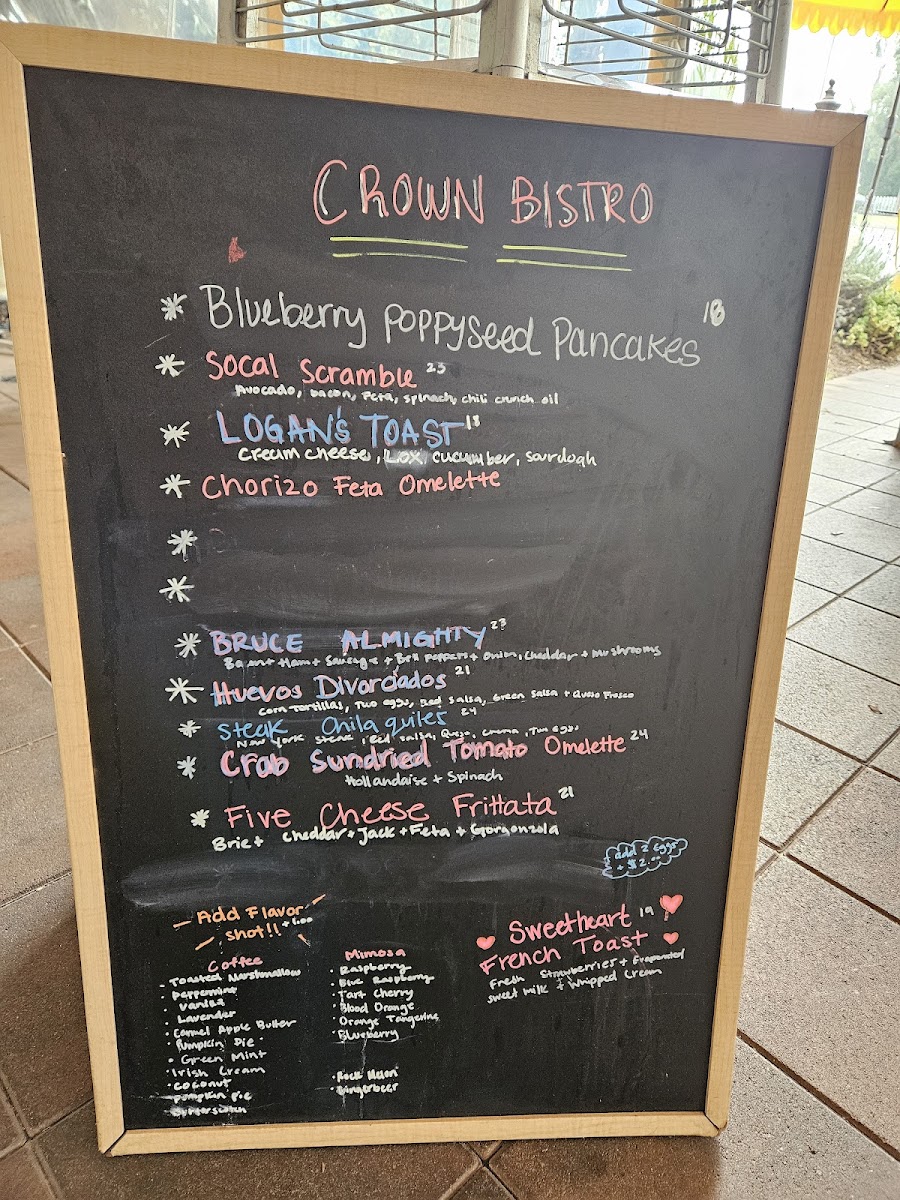 CROWN BISTRO
* Blueberry Poppyseed Pancakes 18
* Socal Scramble 23
Avocado, bacon, Feta, spinach, chili crunch oil
* LOGAN'S TOAST 18
Cream cheese, Lox, cucumber, sourdogh
* Chorizo Feta Omelette
*
*
* BRUCE ALMIGHTY 23
Ham + Sausage + Bell Peppers + Onion, Cheddar + Mushrooms
* Huevos Divorciados 21
Corn Tortillas, Two eggs, Red Salsa, Green Salsa + Queso Fresco
* Steak Chilaquiles 24
New York Steak, Red Salsa, Queso, Crema, Two eggs
* Crab Sundried Tomato Omelette 24
Hollandaise + Spinach
* Five Cheese Frittata 21
Brie + Cheddar + Jack + Feta + Gorgonzola
add 2 eggs
+ $2.00
Add Flavor
shot!! +1.00
Coffee
• Toasted Marshmallow
• Peppermint
• Vanilla
• Lavender
• Carmel Apple Butter
• Pumpkin Pie
• Green Mint
• Irish Cream
• Coconut
• Pumpkin Pie
• Butterscotch
Mimosa
• Raspberry
• Blue Raspberry
• Tart Cherry
• Blood Orange
• Orange Tangerine
• Blueberry
• Rock Melon
• Gingerbeer
Sweetheart 19
French Toast
Fresh Strawberries + Evaporated
sweet milk + Whipped Cream